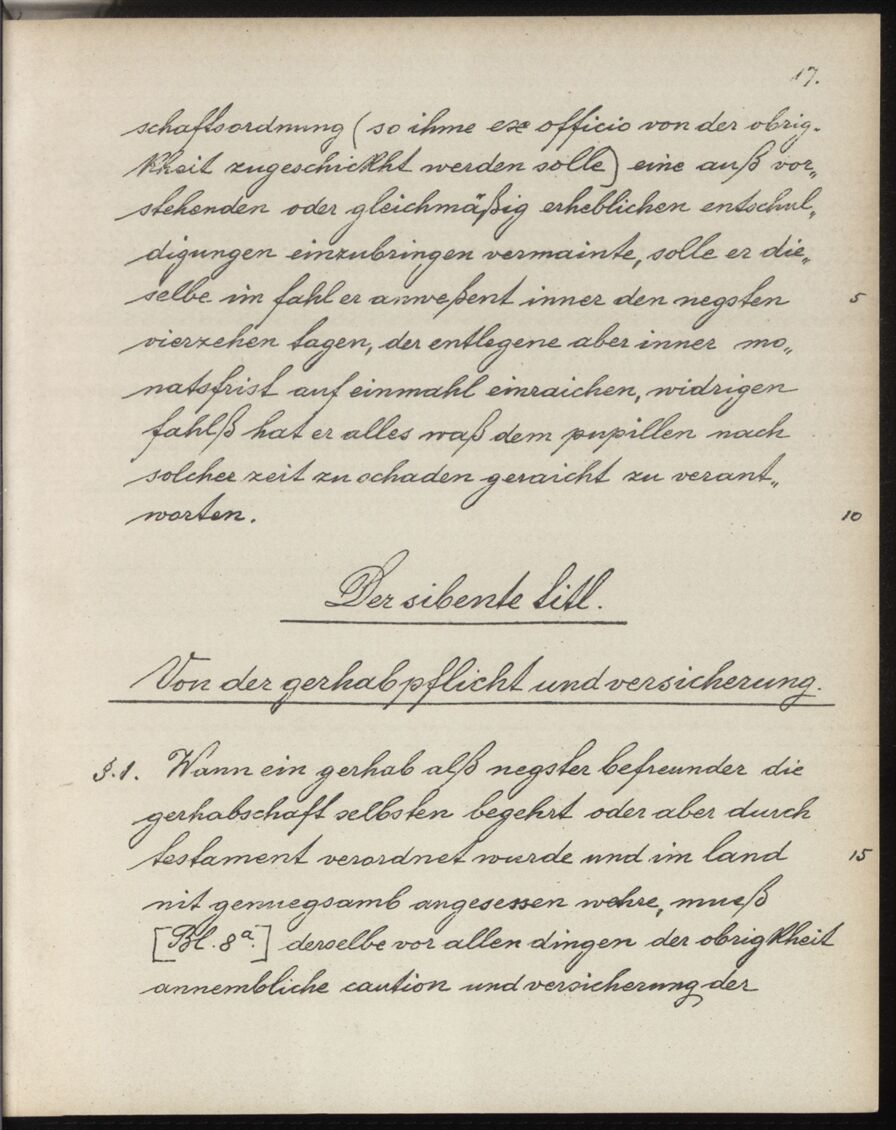 17.
schaftsordnung (so ihme ex officio von der obrig-
kheit zugeschickht werden solle) eine auß vor„
stehenden oder gleichmäßig erheblichen entschul„
digungen einzubringen vermainte, solle er die„
selbe im fahl er anweßent inner den negsten 5
vierzehen tagen, der entlegene aber inner mo„
natsfrist auf einmahl einraichen, widrigen
fahlß hat er alles waß dem pupillen nach
solcher zeit zu schaden geraicht zu verant„
worten. 10
Der sibente titl.
Von der gerhabpflicht und versicherung.
§.1. Wann ein gerhab alß negster befreunder die
gerhabschaft selbsten begehrt oder aber durch
testament verordnet wurde und im land 15
nit genuegsamb angesessen wehre, mueß
[Bl. 8ª.] derselbe vor allen dingen der obrigkheit
annembliche caution und versicherung der